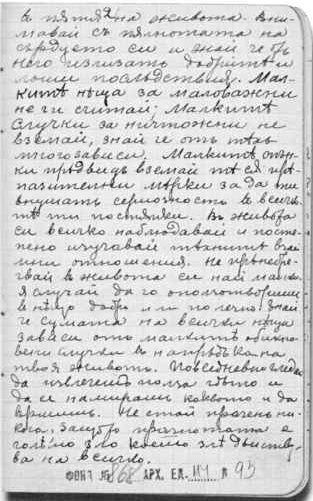 в пътя на живота. Вни-
мавай съ пълнотата на
сърдцето си и знай че отъ
него излизатъ добритѣ и
лоши последствия. Мал-
китѣ нѣща за маловажни
не ги считай; Малкитѣ
случки за нищожни не
вземай, знай че отъ тѣхъ
много зависи. Малкитѣ
вземай
мѣрки за да ти
внушатъ сериозность въ всич-
тѣ ти постѫпки. Въ живота
си всичко наблюдавай и посте-
пенно изучавай тѣхнитѣ взаи-
мни отношения. Не прѣнебрѣ-
гвай въ живота си най малки-
я случай да го оползотворишъ
въ нѣщо добро или полезно. Знай
че сумата на всички нѣща
зависи отъ малкитѣ обикно-
вени случки въ напрѣдъка на
твоя животъ. Повседневно гледай
да извлечешъ полза отъ
да се намирашъ каквото и да
вършишъ. Не стой празенъ ни-
кога, защото празнотата е
голѣмо зло което злѣ дѣйству-
ва на всичко.
ФОНД № 868 АРХ. ЕД. Л 93